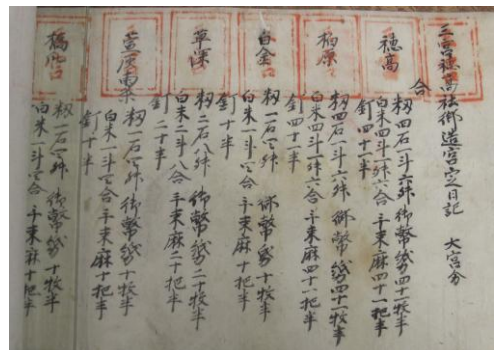 三宮穂高社御造宮定日記 大宮分
合
穂高 籾四石一斗六舛 御幣紙四十一枚半
白米四斗一舛六合 手束麻四十一把半
釘四十一半
栢原 籾四石一斗六舛 御幣紙四十一枚半
白米四斗一舛六合 手束麻四十一把半
釘四十一半
白金 籾一石 御幣紙十枚半
白米一斗 合 手束麻十把半
釘十半
草深 籾二石八舛 御幣紙二十枚半
白米二斗八合 手束麻二十把半
釘二十半
籾一石 御幣紙十枚半
白米一斗 合 手束麻十把半
釘十半
籾一石 御幣紙十枚半
白米一斗 合 手束麻十把半